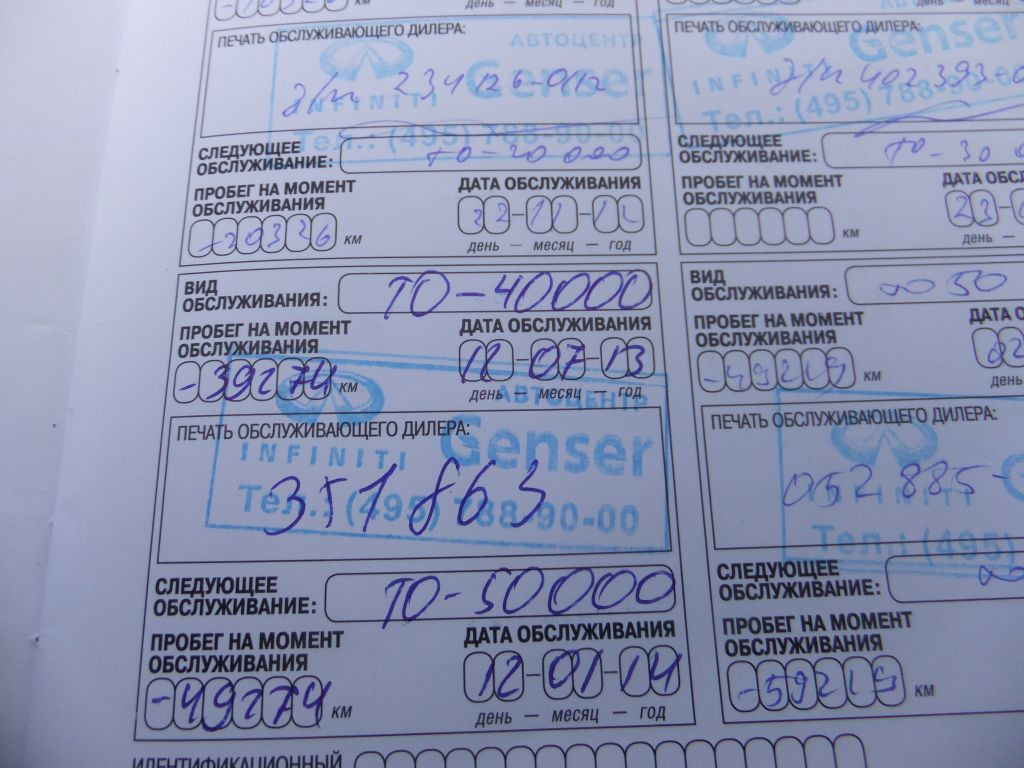 км
день — месяц — год
ПЕЧАТЬ ОБСЛУЖИВАЮЩЕГО ДИЛЕРА:
АВТОЦЕНТР
Genser
INFINITI
Тел.: (495) 788-90-00
СЛЕДУЮЩЕЕ
ОБСЛУЖИВАНИЕ:
ПРОБЕГ НА МОМЕНТ
ОБСЛУЖИВАНИЯ
-20326 км
ДАТА ОБСЛУЖИВАНИЯ
22-11-12
день — месяц — год
ВИД
ОБСЛУЖИВАНИЯ: ТО-40000
ПРОБЕГ НА МОМЕНТ
ОБСЛУЖИВАНИЯ
-39274 км
ДАТА ОБСЛУЖИВАНИЯ
12-07-13
день — месяц — год
ПЕЧАТЬ ОБСЛУЖИВАЮЩЕГО ДИЛЕРА:
АВТОЦЕНТР
Genser
INFINITI
351863
Тел.: (495) 788-90-00
СЛЕДУЮЩЕЕ
ОБСЛУЖИВАНИЕ: ТО-50000
ПРОБЕГ НА МОМЕНТ
ОБСЛУЖИВАНИЯ
-49274 км
ДАТА ОБСЛУЖИВАНИЯ
12-01-14
день — месяц — год
ИДЕНТИФИКАЦИОННЫЙ
ПЕЧАТЬ ОБСЛУЖИВАЮЩЕГО ДИЛЕРА:
Genser
INFINITI
Тел.: (495) 788-90-00
СЛЕДУЮЩЕЕ
ОБСЛУЖИВАНИЕ:
ПРОБЕГ НА МОМЕНТ
ОБСЛУЖИВАНИЯ
км
день —
ВИД
ОБСЛУЖИВАНИЯ:
ПРОБЕГ НА МОМЕНТ
ОБСЛУЖИВАНИЯ
-49219 км
день
ПЕЧАТЬ ОБСЛУЖИВАЮЩЕГО ДИЛЕРА:
052885-
Тел.: (495)
СЛЕДУЮЩЕЕ
ОБСЛУЖИВАНИЕ:
ПРОБЕГ НА МОМЕНТ
ОБСЛУЖИВАНИЯ
-59219 км